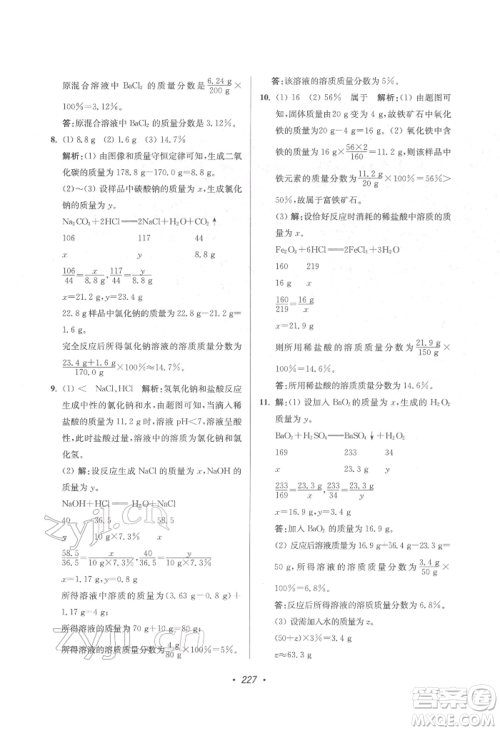 原混合溶液中 BaCl₂ 的质量分数为 6.24 g/200 g
×100%=3.12%。
答:原混合溶液中 BaCl₂ 的质量分数为 3.12%。
8. (1) 8.8 g (2) 1.6 g (3) 14.7%
解析:(1) 由图像和质量守恒定律可知,生成二氧
化碳的质量为 178.8 g-170.0 g=8.8 g。
(2)~(3) 设样品中碳酸钠的质量为 x,生成氯化
钠的质量为 y。
Na₂CO₃+2HCl══2NaCl+H₂O+CO₂↑
106 117 44
x y 8.8 g
106/44=x/8.8 g,117/44=y/8.8 g
x=21.2 g,y=23.4 g
22.8 g样品中氯化钠的质量为 22.8 g-21.2 g=
1.6 g。
完全反应后所得氯化钠溶液的溶质质量分数为
23.4 g+1.6 g/170.0 g×100%≈14.7%。
9. (1) < NaCl、HCl 解析:氢氧化钠和盐酸反应
生成的氯化钠和水,由题图可知,当滴入稀盐
酸的质量为 11.2 g时,溶液的 pH<7,溶液显酸
性,此时盐酸过量,溶液中的溶质为氯化钠和氯
化氢。
(2) 解:设反应生成 NaCl 的质量为 x,NaOH 的
质量为 y。
NaOH+HCl══NaCl+H₂O
40 36.5 58.5
y 10 g×7.3% x
58.5/36.5=x/10 g×7.3%,40/36.5=y/10 g×7.3%
x=1.17 g,y=0.8 g
所得溶液中溶质的质量为 (3.63 g-0.8 g)+
1.17 g=4 g
所得溶液的质量为 70 g+10 g=80 g
所得溶液的溶质质量分数为 4 g/80 g×100%=5%。
答:该溶液的溶质质量分数为 5%。
10. (1) 16 (2) 56% 属于 解析:(1) 由题图可知
氧化铁的质量为 20 g-4 g=16 g。(2) 氧化铁中含
铁的质量为 16 g×56×2/160=11.2 g,则该样品中
铁元素的质量分数为 11.2 g/20 g×100%=56%>
50%,故属于富铁矿石。
(3) 解:设恰好反应时消耗的稀盐酸中溶质的质
量为 x。
Fe₂O₃+6HCl══2FeCl₃+3H₂O
160 219
16 g x
160/219=16 g/x
x=21.9 g
则所用稀盐酸的溶质质量分数为 21.9 g/150 g×
100%=14.6%
答:所用稀盐酸的溶质质量分数为 14.6%。
11. 解:(1) 设加入 BaO₂ 的质量为 x,生成的 H₂O₂
质量为 y。
BaO₂+H₂SO₄══BaSO₄↓+H₂O₂
169 233 34
x 23.3 g y
x/169=23.3 g/233,y/34=23.3 g/233
x=16.9 g,y=3.4 g
答:加入 BaO₂ 的质量为 16.9 g。
(2) 反应后溶液质量为 16.9 g+56.4 g-23.3 g=
50 g,所得溶液的溶质质量分数为 3.4 g/50 g×
100%=6.8%
答:反应后所得溶液的溶质质量分数为 6.8%。
(3) 设加入水的质量为 z。
(50+z)×3%=3.4 g
z≈63.3 g
• 227 •
zyjl.cn
zyjl.cn
答案圈
MXQE.COM